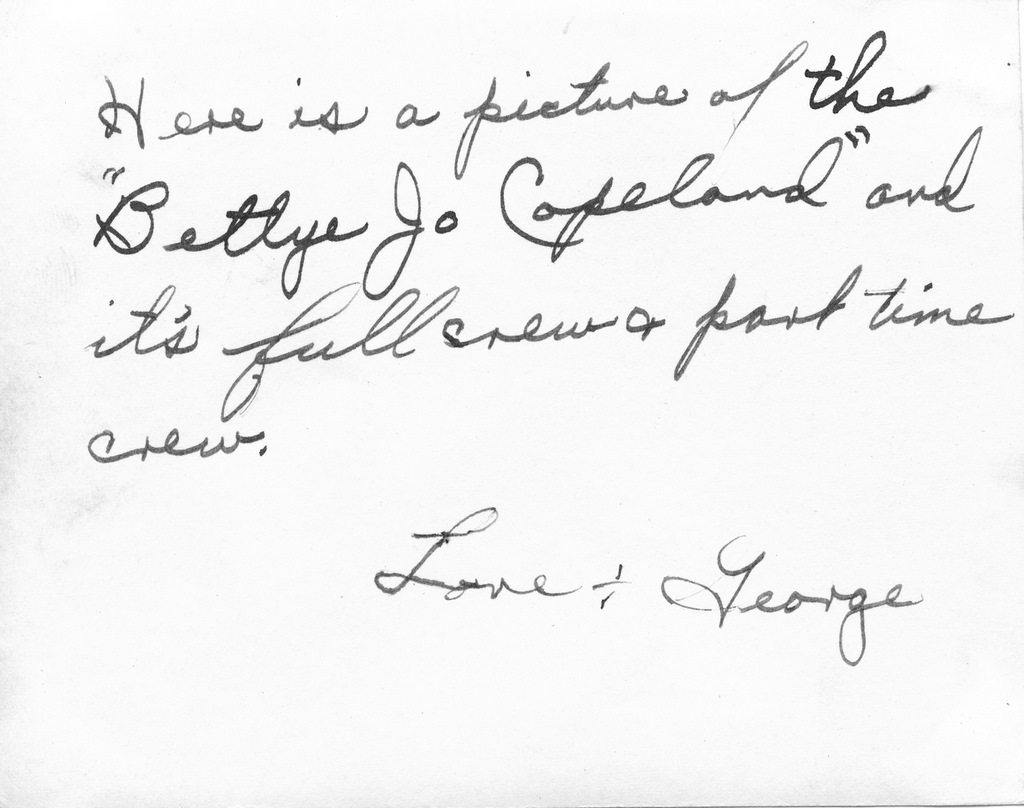 Here is a picture of the
"Bettye Jo Copeland" and
it's full crew & part time
crew.
Love + George